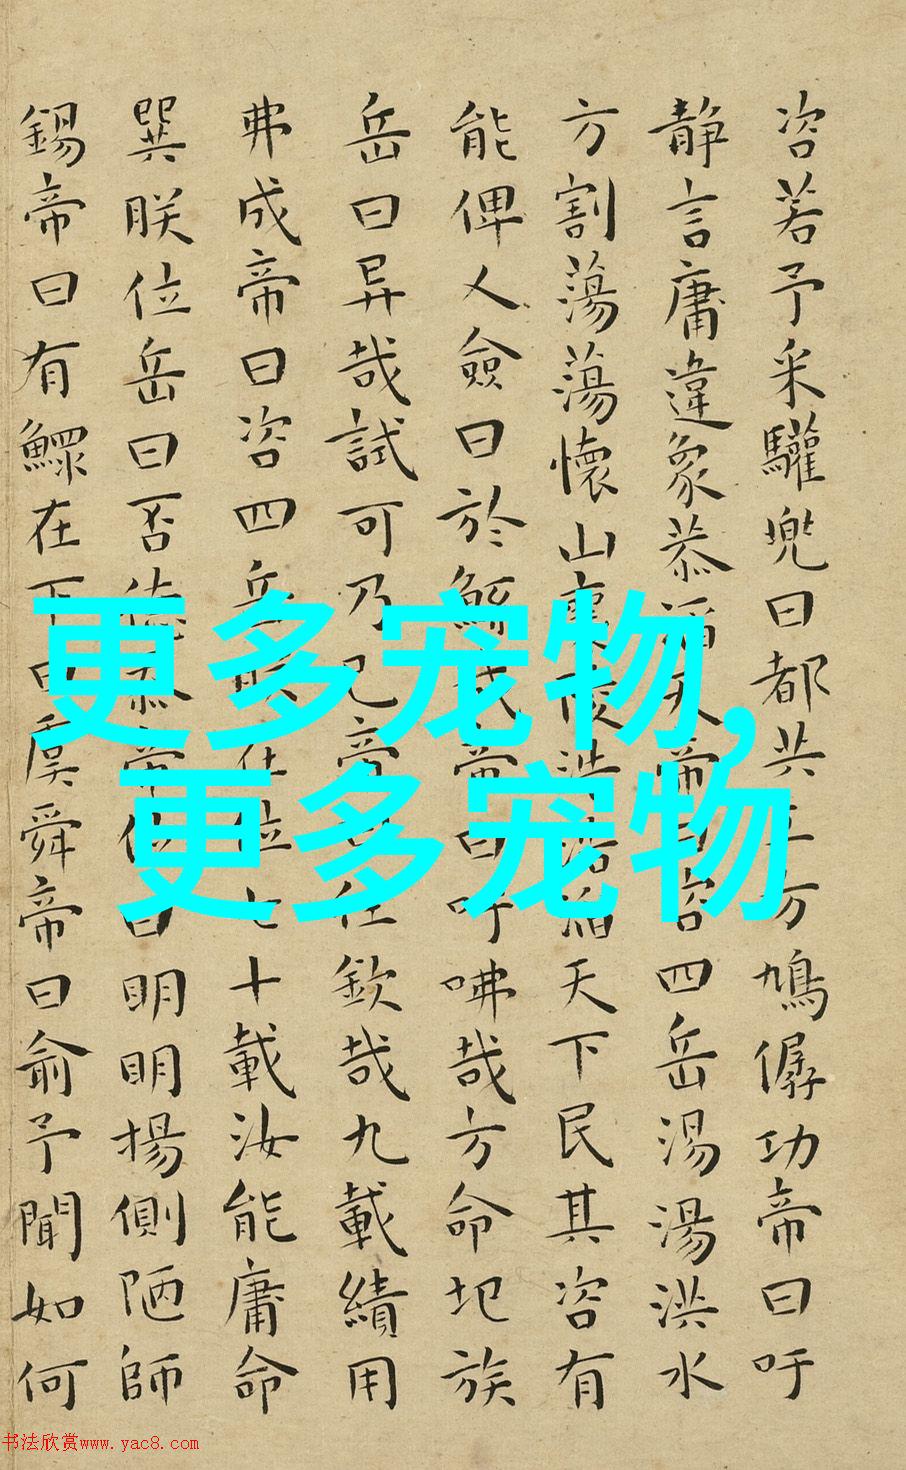 咨若予采驩兜曰都共工方鳩僝功帝曰吁
静言庸違象恭滔天帝曰咨四岳湯湯洪水
方割蕩蕩懷山襄陵浩浩滔天下民其咨有
能俾乂僉曰於鯀哉帝曰吁咈哉方命圮族
岳曰异哉試可乃已帝曰往欽哉九載績用
弗成帝曰咨四岳朕在位七十載汝能庸命
巽朕位岳曰否德忝帝位曰明明揚側陋師
錫帝曰有鰥在下曰虞舜帝曰俞予聞如何
更多宠物,
更多宠物
书法欣赏www.yac8.com